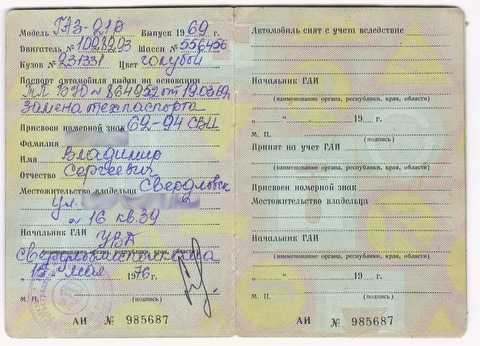 Модель № ГАЗ-21В Выпуск 1969 г.
Двигатель № Шасси № 556456
Кузов № 231331 Цвет голубой
Паспорт автомобиля выдан на основании
ТП 1070 № 864952 от 19.03.69
Замена техпаспорта
Присвоен номерной знак 62-94 СВИ
Фамилия
Имя Владимир
Отчество Сергеевич
Местожительство владельца Свердловск
ул.
№ 16 кв. 39
Начальник ГАИ УВД
Свердл
мая 1976 г.
М. П. (подпись)
АИ № 985687
Автомобиль снят с учета вследствие
Начальник ГАИ
(наименование органа, республики, края, области)
„ “ 19 г.
М. П. (подпись)
Принят на учет ГАИ
(наименование органа, республики, края, области)
Присвоен номерной знак
Местожительство владельца
Начальник ГАИ
(наименование органа, республики, края, области)
„ “ 19 г.
М. П. (подпись)
АИ № 985687